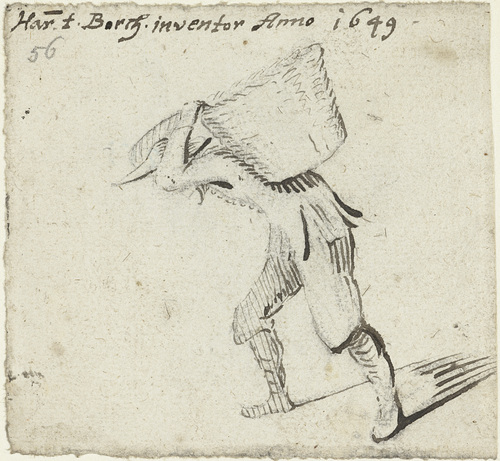 Har̅ t. Borch. inventor Anno 1649.
56